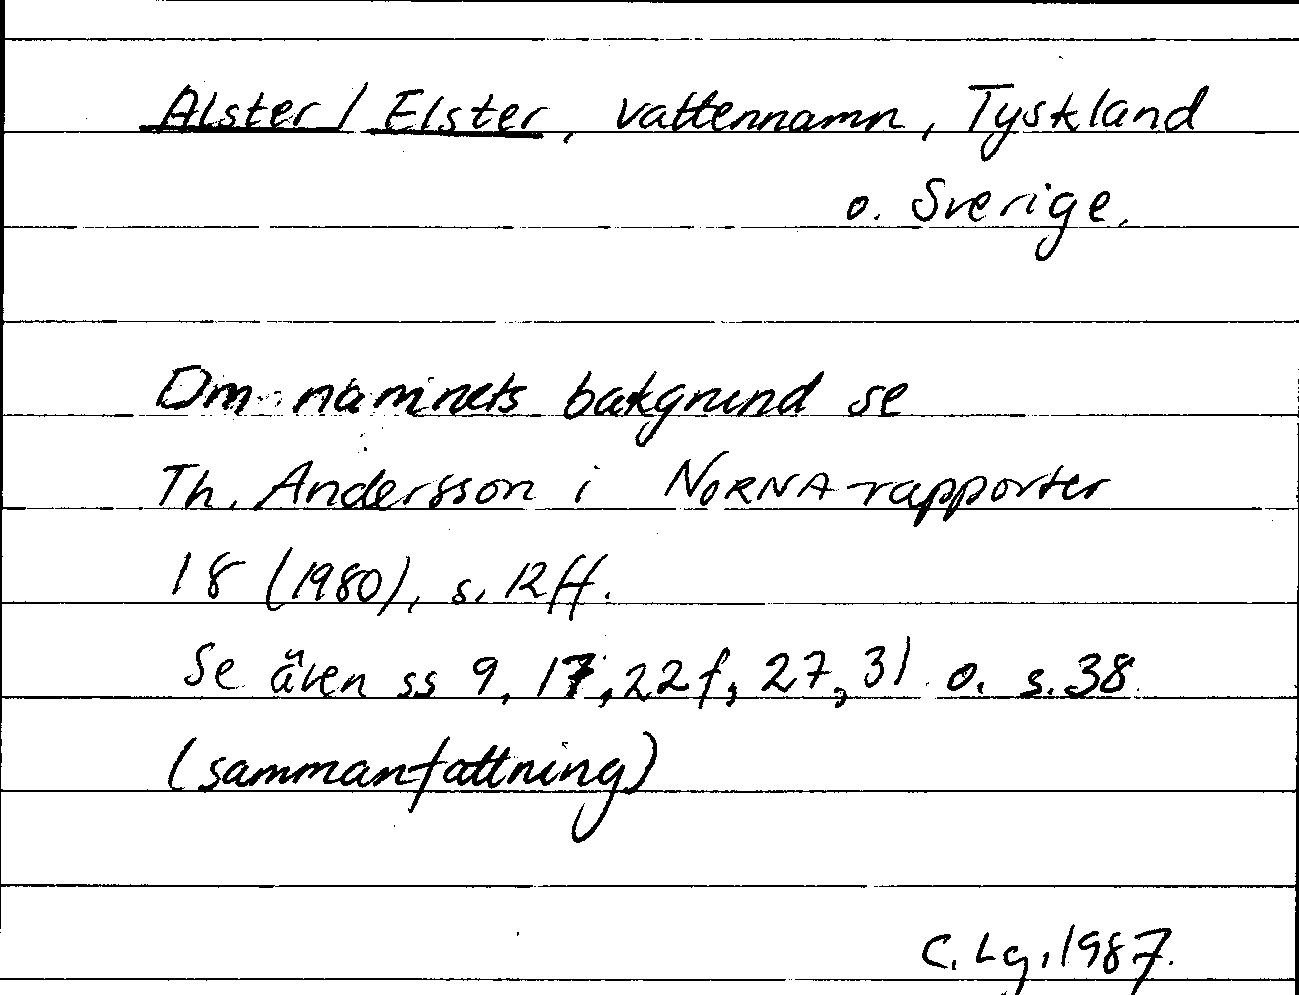 Alster / Elster, vattennamn, Tyskland
o. Sverige.
Om namnets bakgrund se
Th. Andersson i NORNA-rapporter
18 (1980), s. 12 ff.
Se även ss 9, 17, 22 f, 27, 31 o. s. 38
(sammanfattning)
C. Lg, 1987.